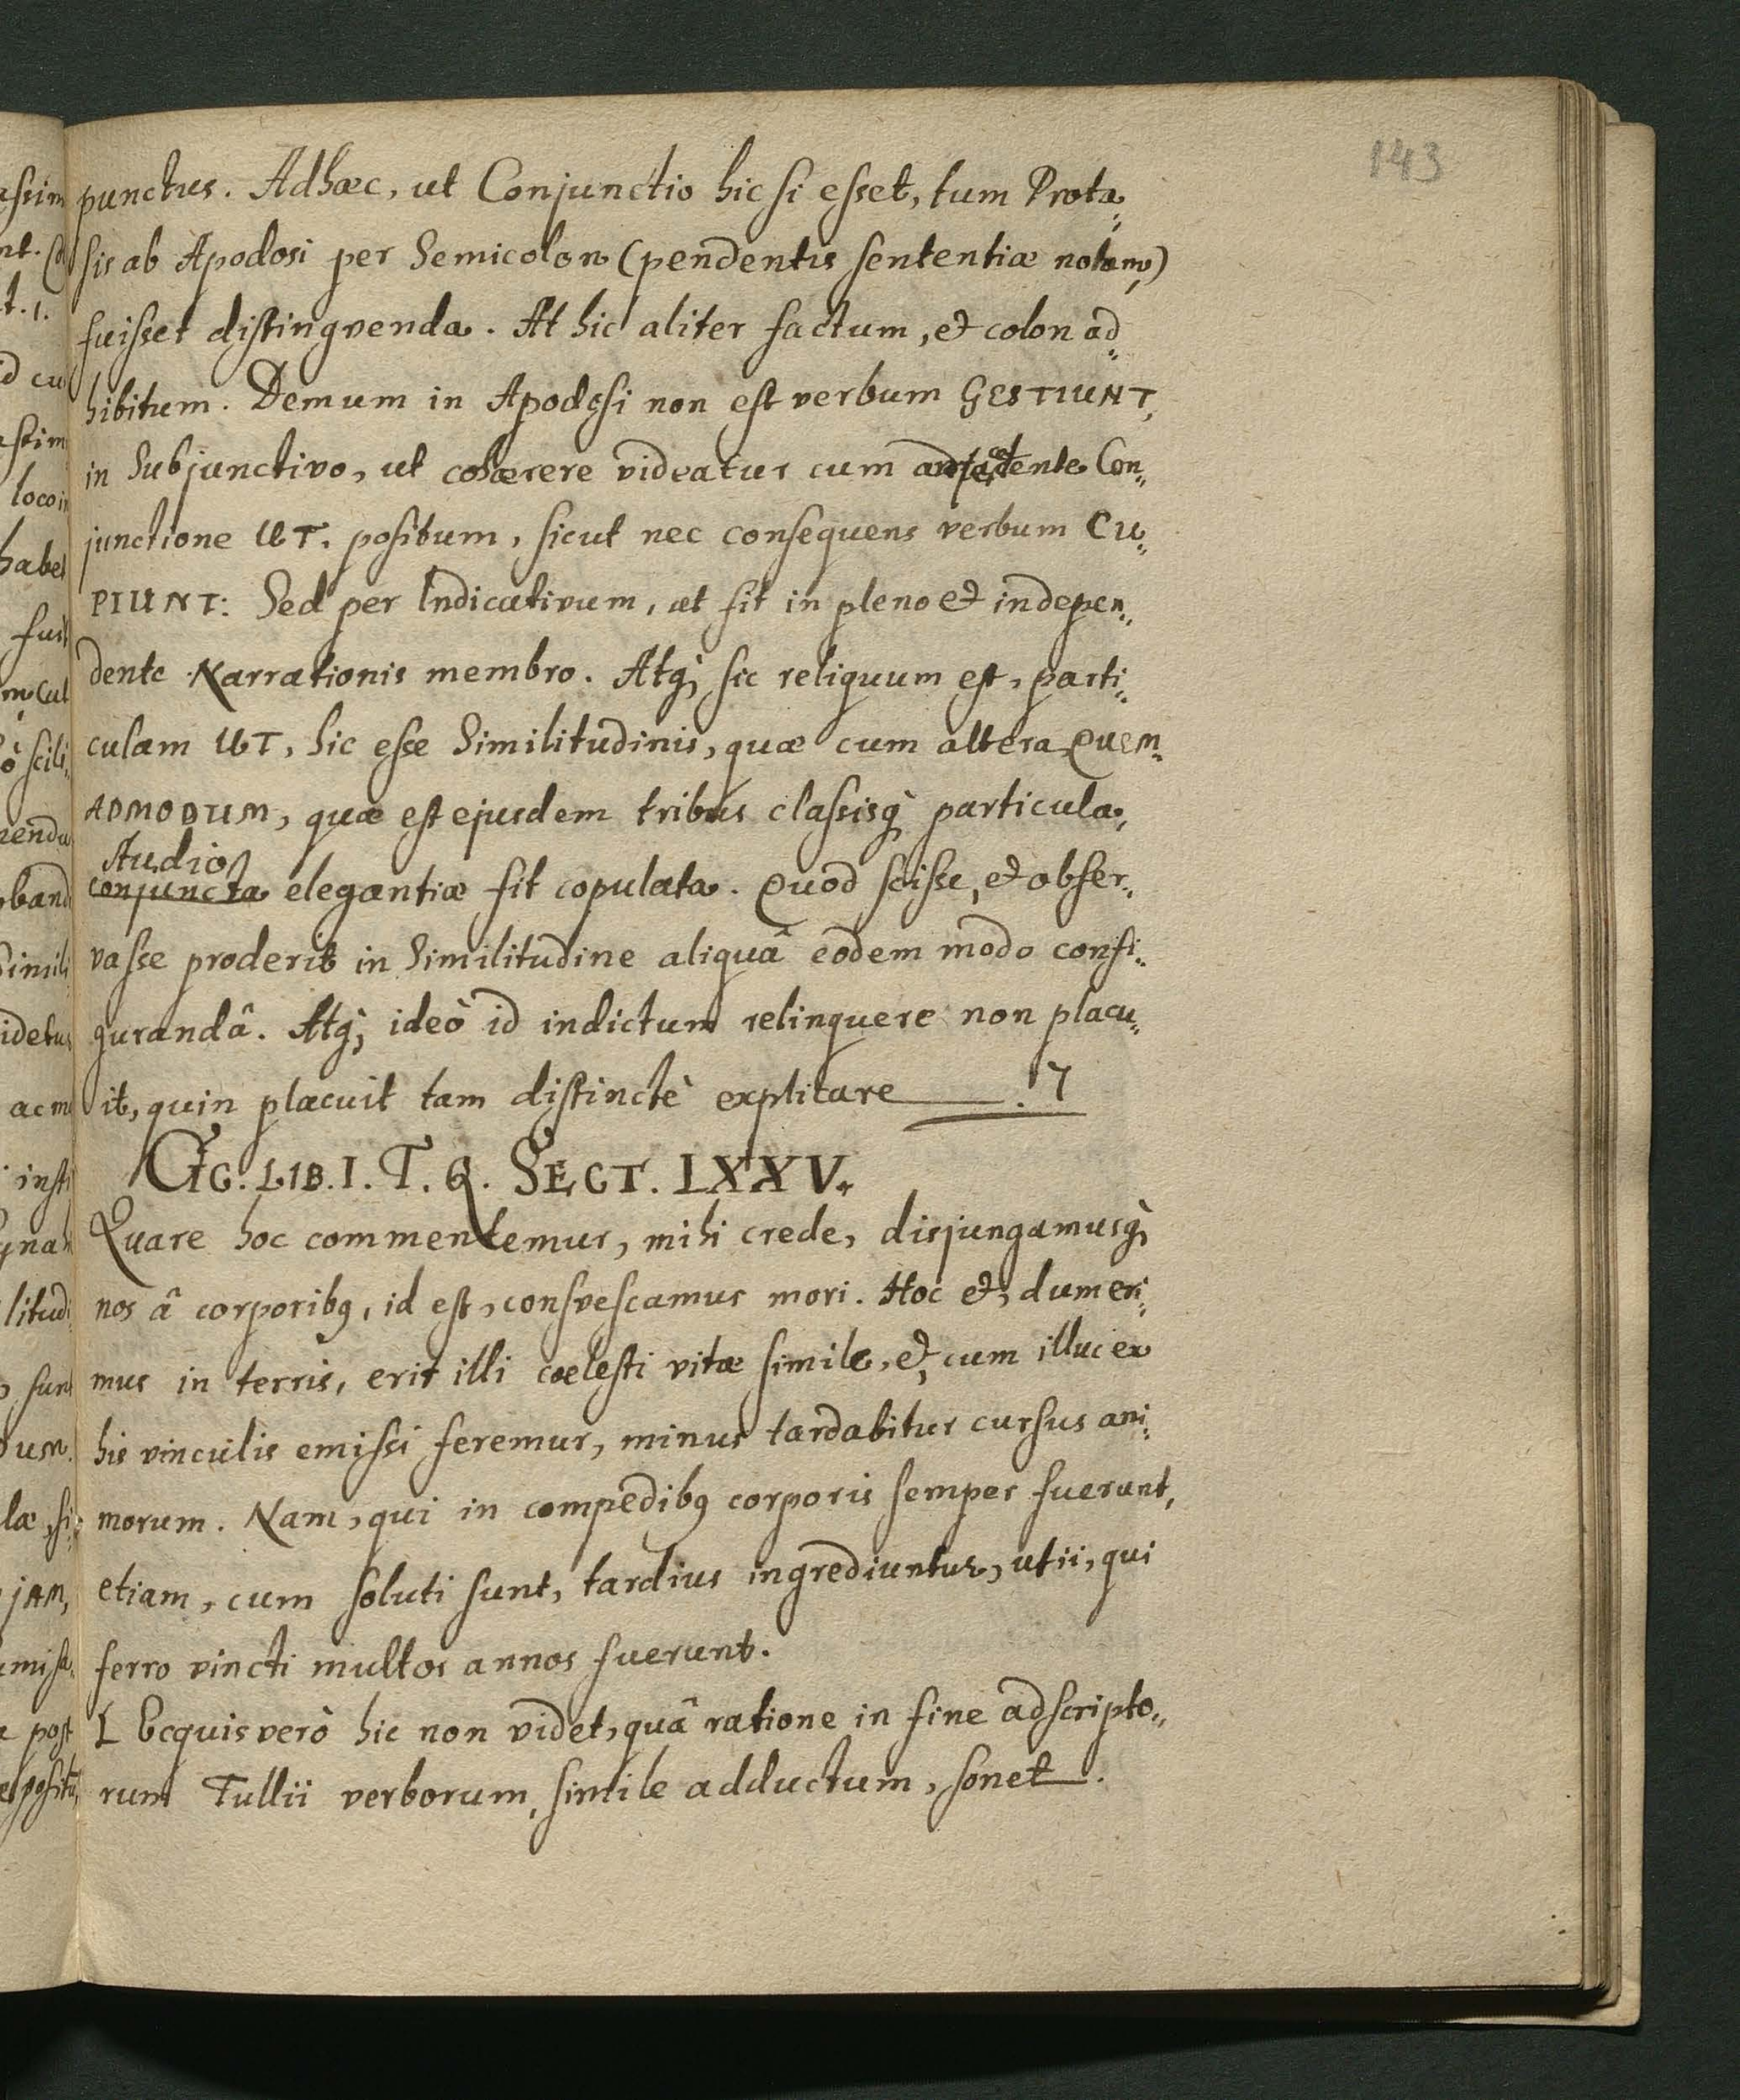 143
punctus. Adhæc, ut Conjunctio hic si esset, tum Prota„
sis ab Apodosi per Semicolon (pendentis sententiæ notam,)
fuisset distingvenda. At hic aliter factum, et colon ad„
hibitum. Demum in Apodosi non est verbum GESTIUNT,
in Subjunctivo, ut cohærere videatur cum Con„
junctione UT. positum, sicut nec consequens verbum CU„
PIUNT: Sed per Indicativum, ut fit in pleno et indepen„
dente Narrationis membro. Atq; sic reliquum est, parti„
culam UT, hic esse Similitudinis, quæ cum altera QUEM„
ADMODUM, quæ est ejusdem tribus classisq; particula,
Audio
conjuncta elegantiæ sit copulata. Quod scisse, et obser„
vasse proderit in Similitudine aliquâ eodem modo confi„
gurandâ. Atq; ideò id indictum relinquere non placu„
it, quin placuit tam distinctè explicare ——. 7
CIC. LIB. I. T. Q. SECT. LXXV.
Quare hoc commentemur, mihi crede, disjungamusq;
nos â corporibq, id est, consvescamus mori. Hoc et, dum eri„
mus in terris, erit illi cœlesti vitæ simile, et, cum illuc ex
his vinculis emissi feremur, minus tardabitur cursus ani„
morum. Nam, qui in compedibq corporis semper fuerunt,
etiam, cum soluti sunt, tardius ingrediuntur, ut ii, qui
ferro vincti multos annos fuerunt.
L Ecquis verò hic non videt, quâ ratione in fine adscripto„
rum Tullii verborum, simile adductum, sonet.